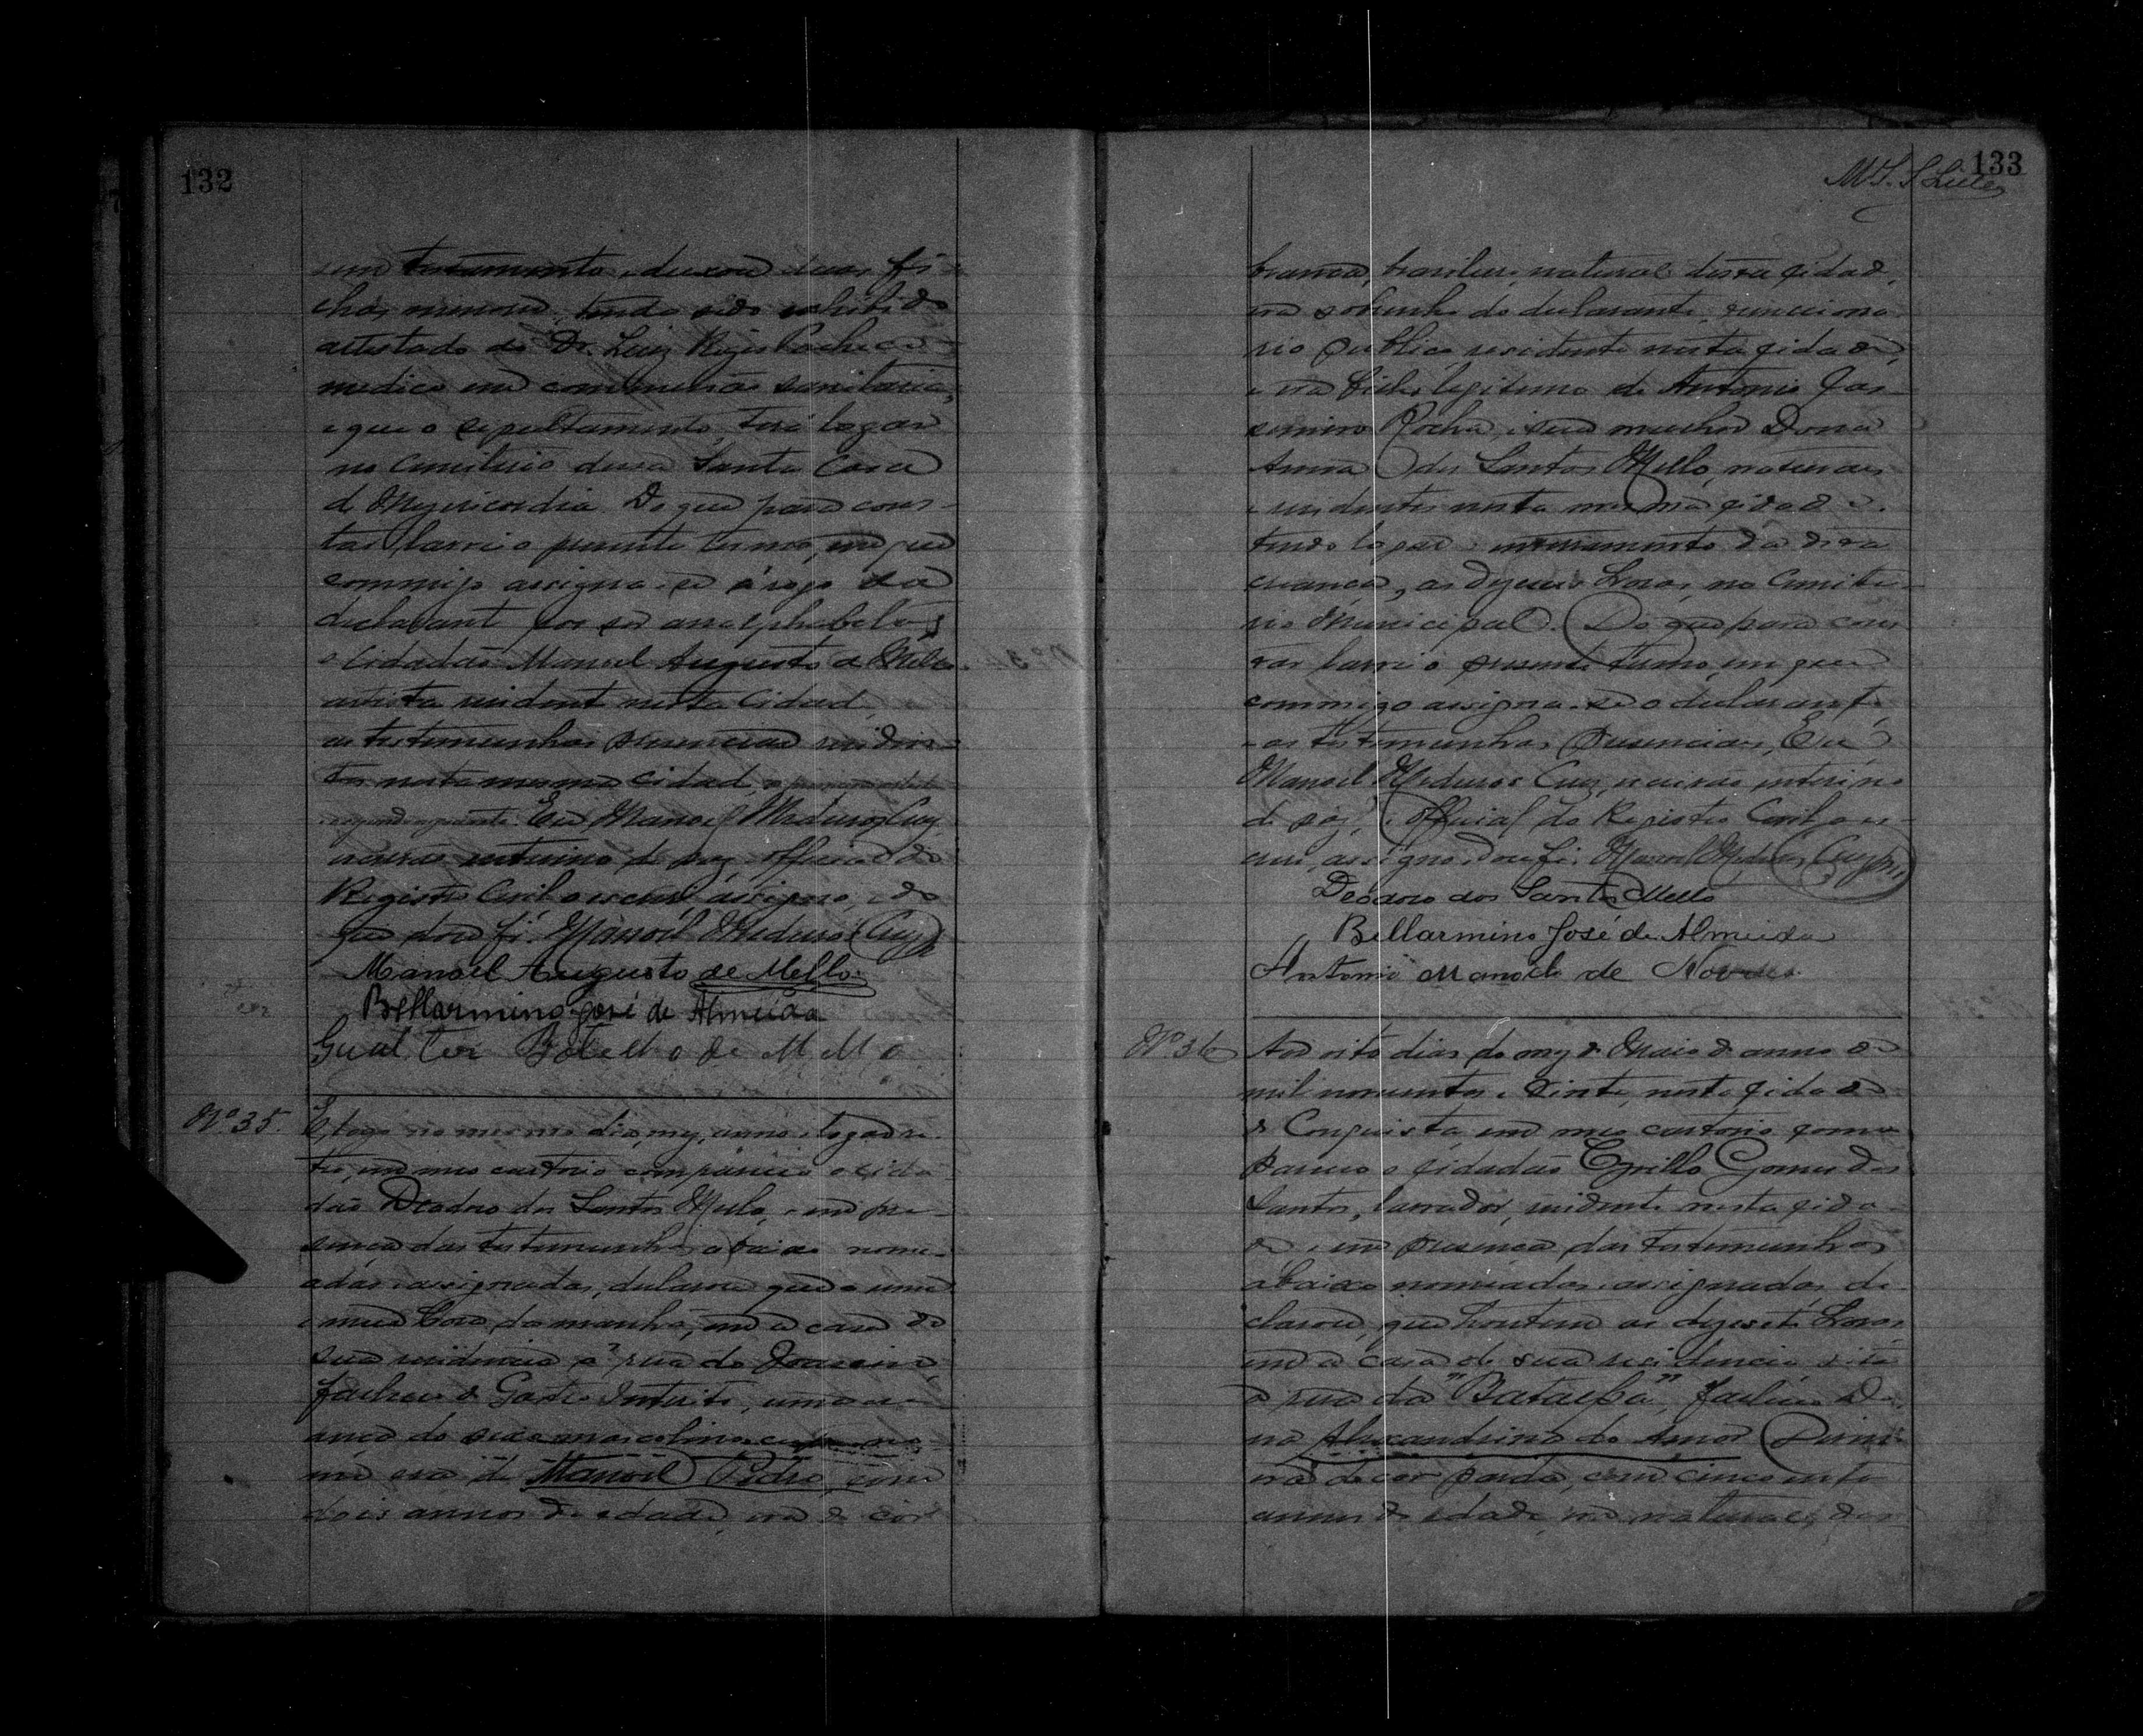 132
sem testamento, deixou duas fi-
lhas menores, tendo sido exhibido
attestado do Dr. Luiz Regis Pacheco
medico em commissão sanitaria,
e que o sepultamento, terá logar
no Cemiterio dessa Santa Casa
de Mizericordia. Do que para cons-
tar lavrei o presente termo, em que
commigo assigna-se á rogo da
declarante por ser analphabeta,
o Cidadão Manoel Augusto de Mello
artista residente nesta Cidade,
as testemunhas presenciaes residen-
tes nesta mesma cidade,
Eu Manoel Medeiros Cruz,
escrivão interino de paz, official do
Registro Civil o escrevi assigno, do
que dou fé. Manoel Medeiros Cruz
Manoel Augusto de Mello
Bellarmino José de Almeida
Gualter Botelho de Mello
Nº 35.
E, logo no mesmo dia, mez, anno, logar re-
tro, em meu cartorio compareceu o cida-
dão Deodoro dos Santos Mello, e em pre-
sença das testemunhas abaixo nome-
adas e assignadas, declarou que a uma
e meia hora da manhã, em a casa de
sua residencia á rua do
falleceu de Gastro Enterite, uma cri-
ança do sexo masculino cujo no-
me era de Manoel Pedro, com
dois annos de edade, era de côr
133
branca, brasileiro, natural desta cidade,
era sobrinho do declarante, funcciona-
rio publico, residente nesta cidade,
e era filho legitimo de Antonio Jas-
semiro Rocha, e sua mulher Dona
Anna dos Santos Mello, naturaes
e residentes nesta mesma cidade.
tendo logar o enterramento da dita
creança, as dezeseis horas, no Cemite-
rio Municipal. Do que para cons-
tar lavrei o presente termo, em que
commigo assigna-se o declarante
e as testemunhas presenciaes, Eu
Manoel Medeiros Cruz, escrivão interino
de paz, e official do Registro Civil o es-
crevi, assigno, dou fé. Manoel Medeiros Cruz
Deodoro dos Santos Mello
Bellarmino José de Almeida
Antonio Manoel de Novaes
Nº 36
Aos oito dias do mez de Maio do anno de
mil novecentos e vinte, nesta cidade
de Conquista, em meu cartorio com-
pareceu o cidadão Cyrillo Gomes dos
Santos, lavrador, residente nesta cida-
de, e em presença das testemunhas
abaixo nomeadas e assignadas, de-
clarou, que hontem as dezesete horas,
em a casa de sua residencia sita
a rua da "Batalha", falleceu Do-
na Alexandrina do Amor Divino
era de cor parda, com cincoenta
annos de edade, era natural, des-